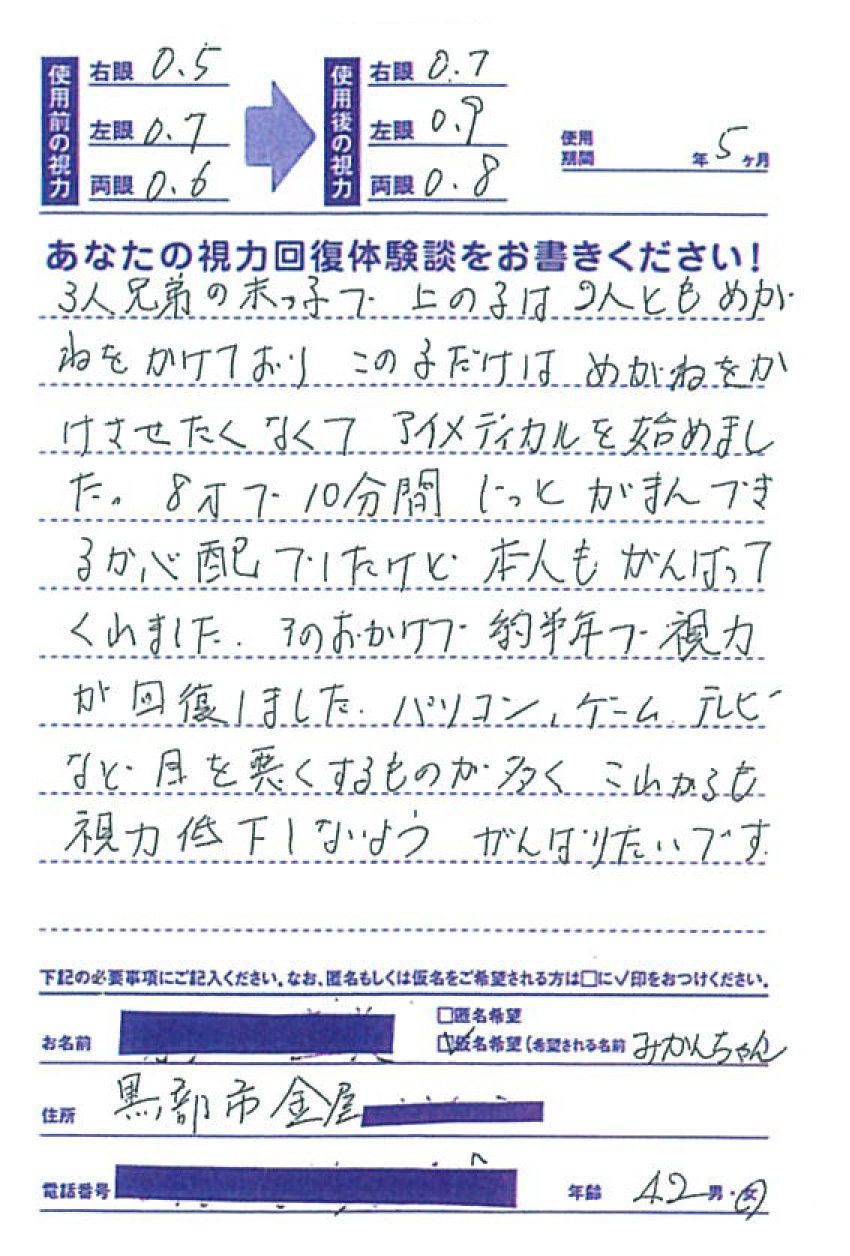 使用前の視力
右眼 0.5
左眼 0.7
両眼 0.6
使用後の視力
右眼 0.7
左眼 0.9
両眼 0.8
使用期間 年 5 ヶ月
あなたの視力回復体験談をお書きください！
3人兄弟の末っ子で 上の子は 2人とも めが
ねを かけており この子だけは めがねをか
けさせたく なくて アイメディカルを始めまし
た。 8才で 10分間 じっと がまんでき
るか心配でしたけど 本人も がんばって
くれました. そのおかげで 約半年で 視力
が 回復しました. パソコン、ゲーム テレビ
など 目を悪くするものが 多く これからも
視力低下しないよう がんばりたいです.
下記の必要事項にご記入ください。なお、匿名もしくは仮名をご希望される方は□に✓印をおつけください。
お名前
□匿名希望
☑仮名希望（希望される名前 みかんちゃん
住所 黒部市金屋
電話番号
年齢 42 男・女